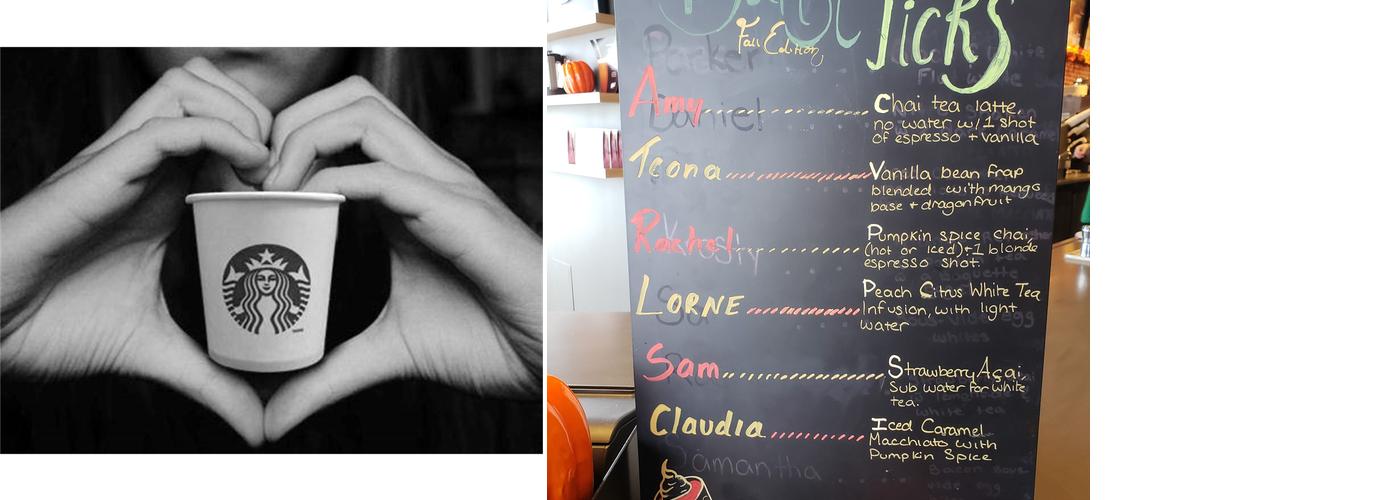 Barista Picks
Fall Edition
Amy
Chai tea latte,
no water w/1 shot
of espresso + vanilla
Teona
Vanilla bean frap
blended with mango
base + dragonfruit
Rachel
Pumpkin spice chai,
(hot or iced)+1 blonde
espresso shot.
LORNE
Peach Citrus White Tea
Infusion, with light
water
Sam
Strawberry Açai,
Sub water for white
tea.
Claudia
Iced Caramel
Macchiato with
Pumpkin Spice
Parker
Daniel
Samantha